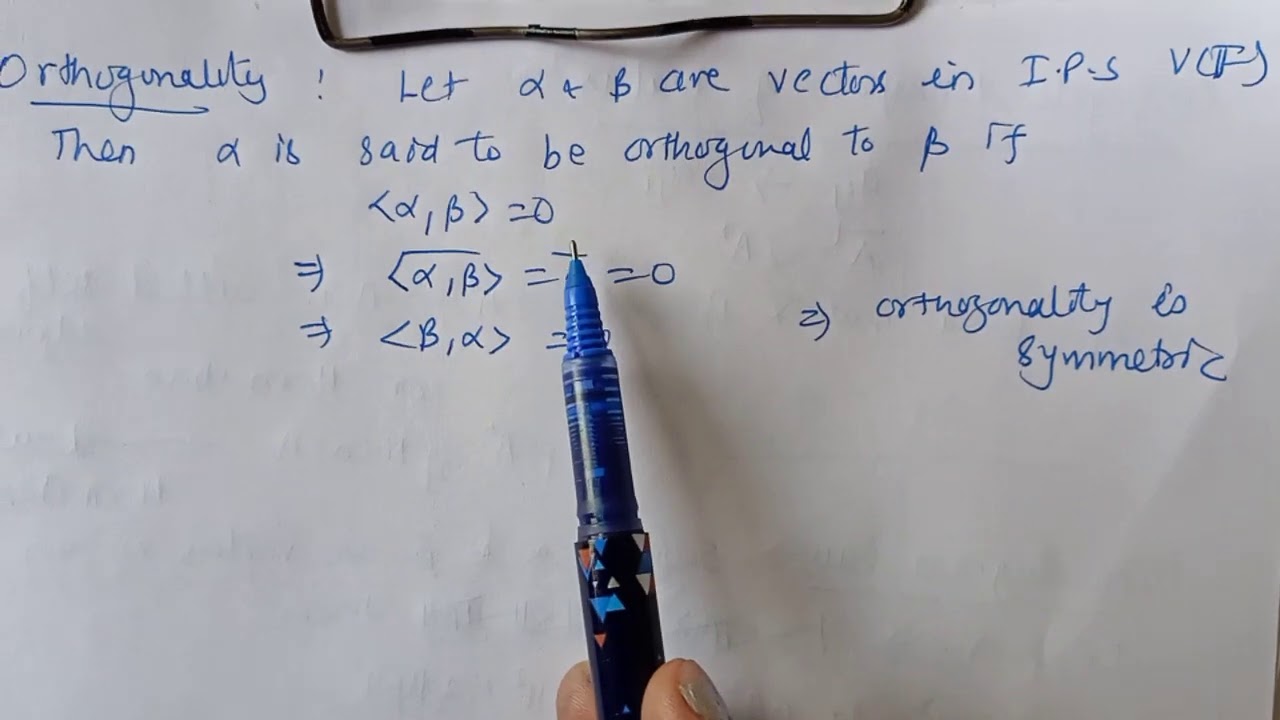 Orthogonality : Let α & β are vectors in I.P.S V(𝔽)
Then α is said to be orthogonal to β If
<α, β> = 0
⇒ <α, β>‾ = = 0
⇒ <β, α> =
⇒ orthogonality is
symmetric